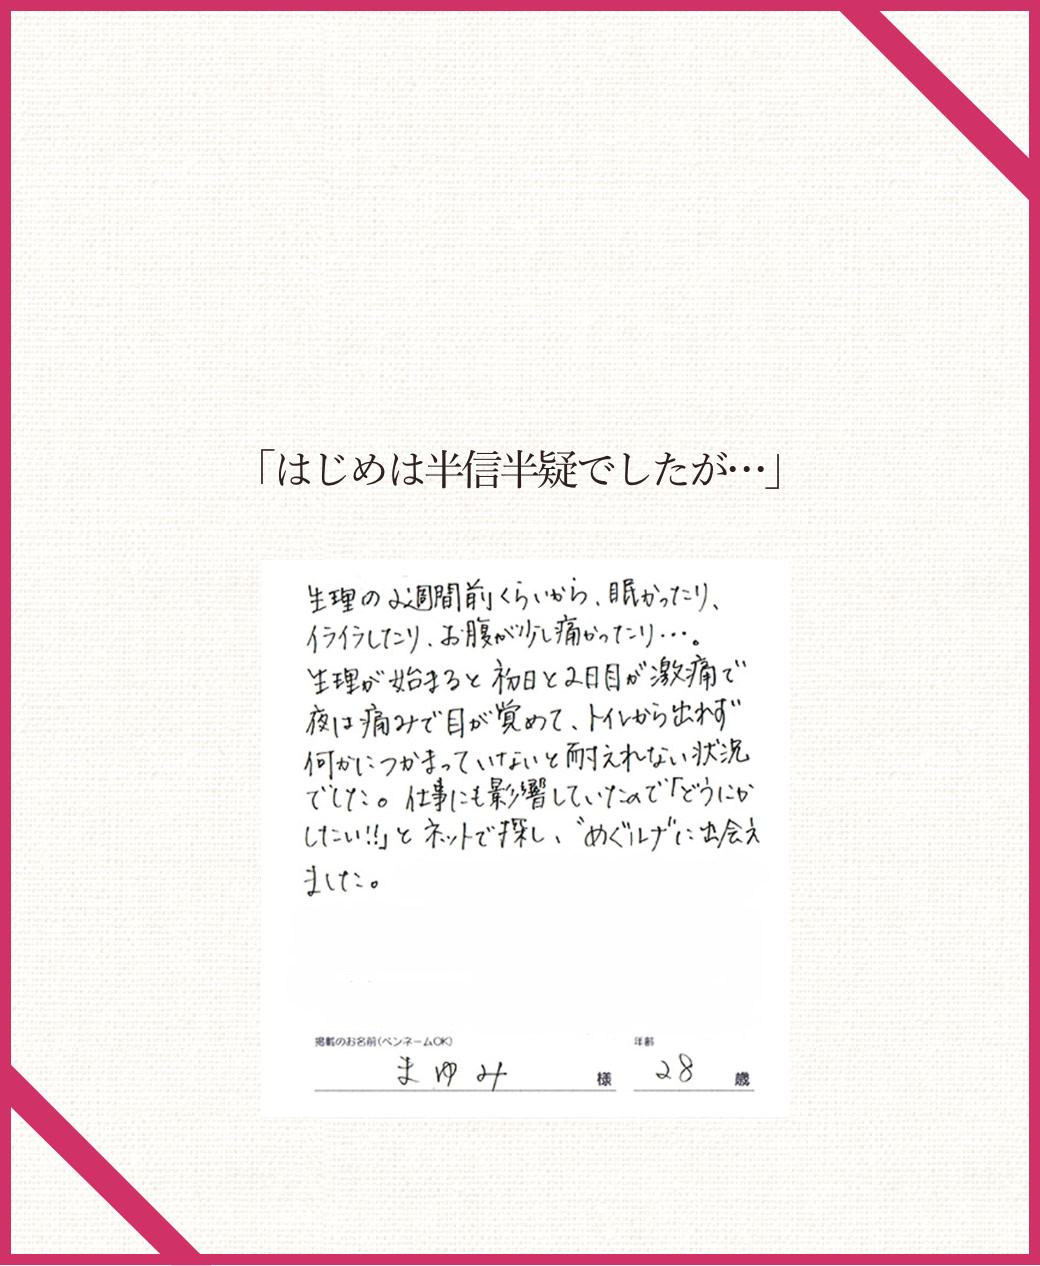 「はじめは半信半疑でしたが…」
生理の2週間前くらいから、眠かったり、
イライラしたり、お腹が少し痛かったり…。
生理が始まると初日と2日目が激痛で
夜は痛みで目が覚めて、トイレから出れず
何かにつかまっていないと耐えれない状況
でした。仕事にも影響していたので「どうにか
したい!!」とネットで探し、"めぐルナ"に出会え
ました。
掲載のお名前(ペンネームOK) 年齢
まゆみ 様 28 歳